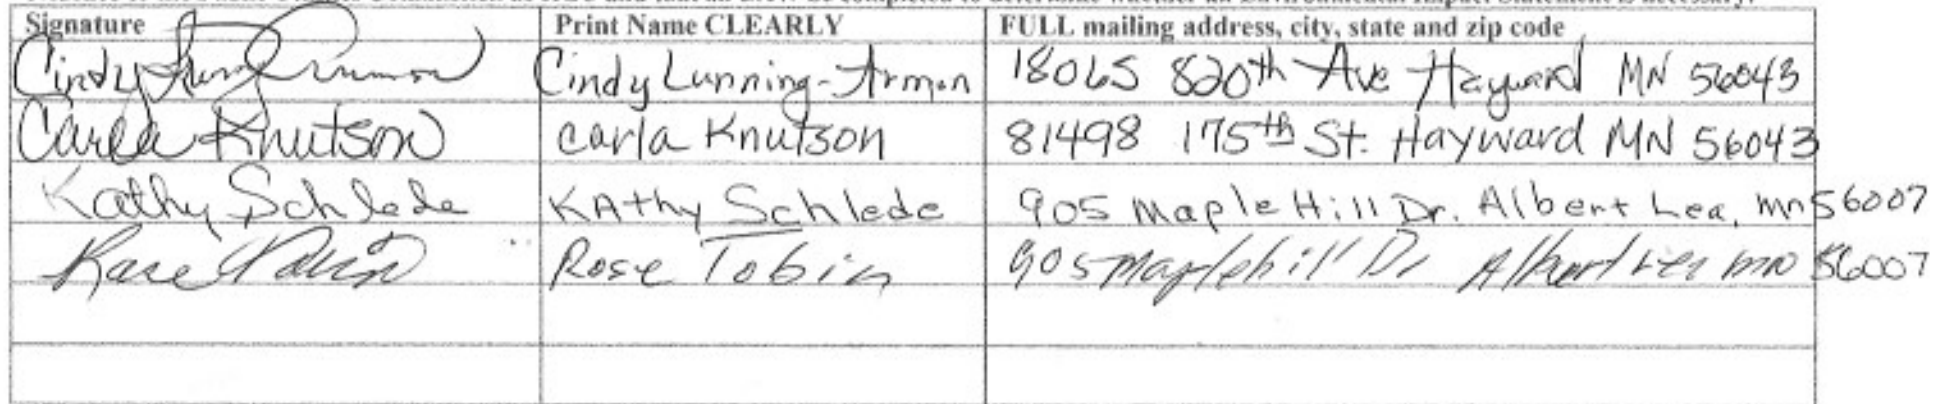 Signature Print Name CLEARLY FULL mailing address, city, state and zip code
Cindy Cindy Lunning-Armon 18065 820th Ave Hayward MN 56043
Carla Knutson Carla Knutson 81498 175th St. Hayward MN 56043
Kathy Schlede KAthy Schlede 905 Maple Hill Dr. Albert Lea, mn 56007
Rose Tobin Rose Tobin 905 Maplehill Dr Albert Lea mn 56007